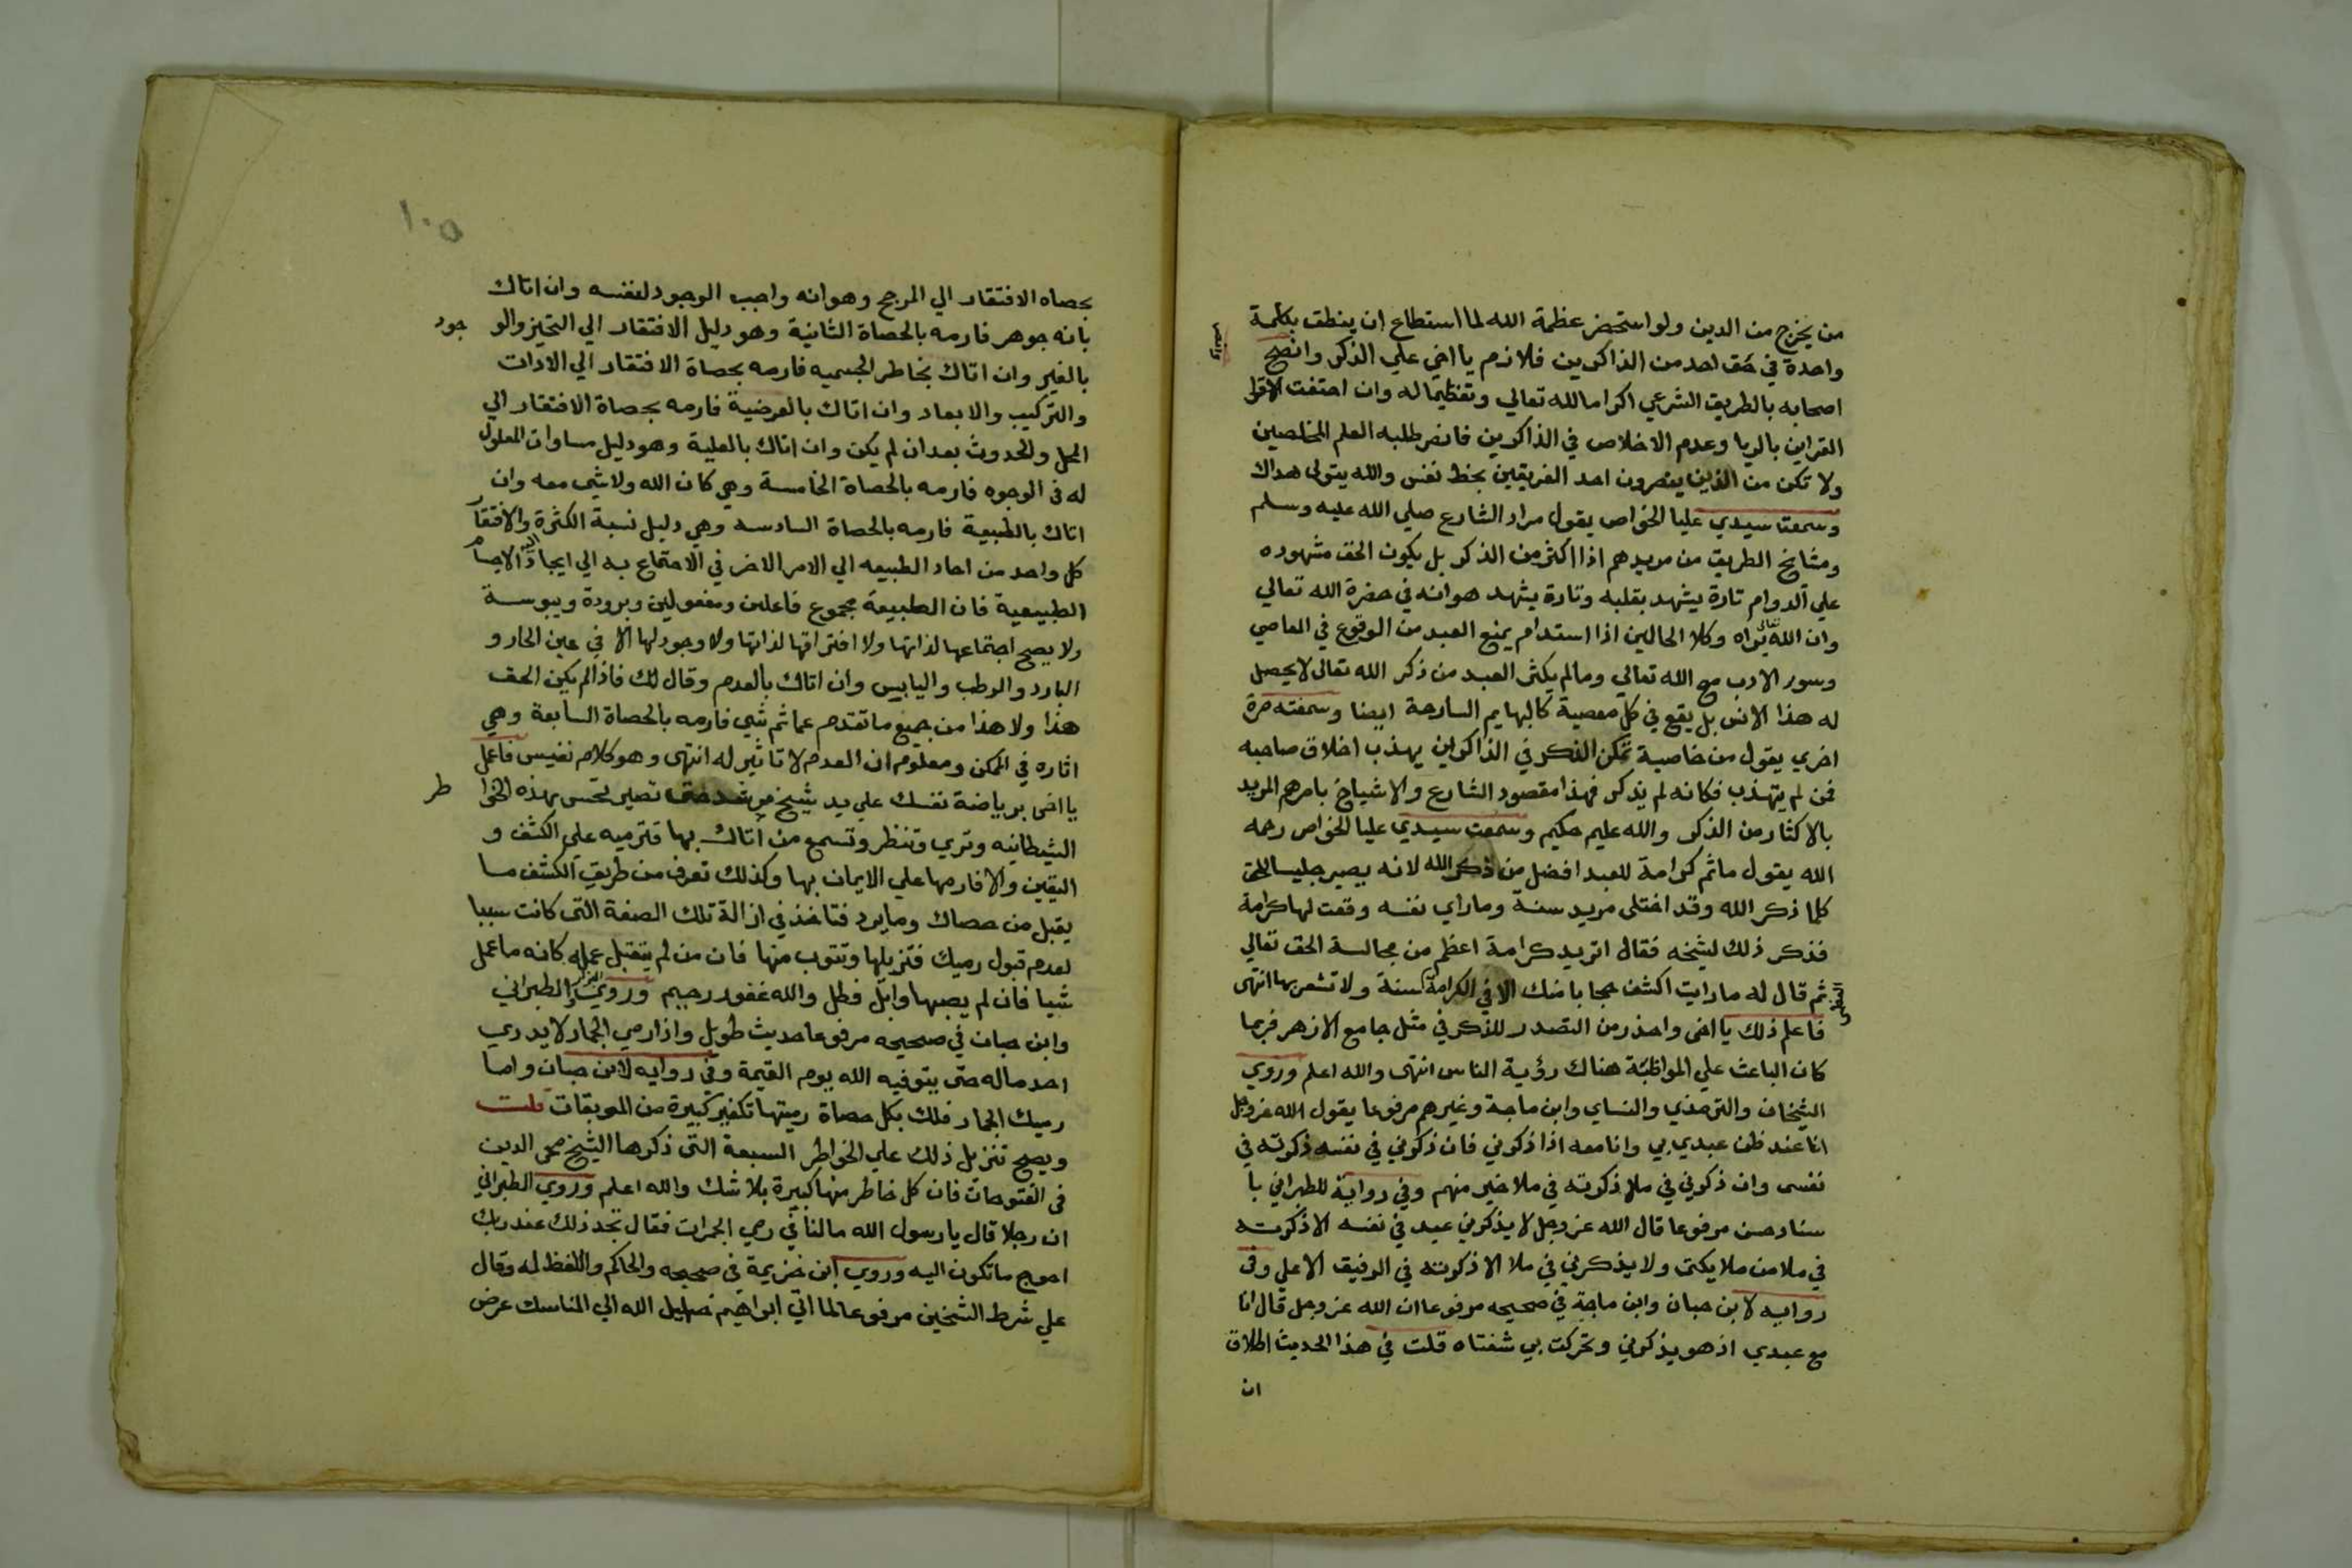 من يخرج من الدين ولو استحضر عظمة الله لما استطاع ان ينطق بكلمة
واحدة في حق احد من الذاكرين فلازم يا اخي علي الذكر وانصح
اصحابه بالطريق الشرعي اكراما لله تعالي وتعظيما له وان احتفت
القراين بالريا وعدم الاخلاص في الذاكرين فانصر طلبه العلم المخلصين
ولا تكن من الذين ينصرون احد الفريقين بحظ نفس والله يتولى هداك
وسمعت سيدي عليا الخواص يقول مراد الشارع صلي الله عليه وسلم
ومشايخ الطريق من مريدهم اذا اكثر من الذكر بل يكون الحق مشهوده
علي الدوام تارة يشهد بقلبه وتارة يشهد هو انه في حضرة الله تعالي
وان الله يراه وكلا الحالين اذا استدام يمنع العبد من الوقوع في المعاصي
وسور الادب مع الله تعالي وما لم يكثر العبد من ذكر الله تعالى لا يحصل
له هذا الانس بل يقع في كل معصية كالبهايم السارحة ايضا وسمعته مرة
اخري يقول من خاصية تمكن الذكر في الذاكرين يهذب اخلاق صاحبه
فمن لم يتهذب فكانه لم يذكر فهذا مقصود الشارع والاشياخ بامرهم المريد
بالاكثار من الذكر والله عليم حكيم وسمعت سيدي عليا الخواص رحمه
الله يقول ما ثم كرامة للعبد افضل من ذكر الله لانه يصير جليسا للحق
كلما ذكر الله وقد اختلى مريد سنة وما راي نفسه وقعت لها كرامة
فذكر ذلك لشيخه فقال اتريد كرامة اعظم من مجالسة الحق تعالي
ثم قال له ما رايت اكثف حجابا منك الا في الكرامة سنة ولا تشعر بها انتهى
فاعلم ذلك يا اخي واحذر من التصدر للذكر في مثل جامع الازهر فربما
كان الباعث علي المواظبة هناك رؤية الناس انتهى والله اعلم وروي
الشيخان والترمذي والنساي وابن ماجة وغيرهم مرفوعا يقول الله عز وجل
انا عند ظن عبدي بي وانا معه اذا ذكرني فان ذكرني في نفسه ذكرته في
نفسى وان ذكرني في ملا ذكرته في ملا خير منهم وفي رواية للطبراني با
سناد حسن مرفوعا قال الله عز وجل لا يذكرني عبد في نفسه الا ذكرته
في ملا من ملايكتى ولا يذكرني في ملا الا ذكرته في الرفيق الاعلي وفى
روايه لابن حبان وابن ماجة في صحيحه مرفوعا ان الله عز وجل قال انا
مع عبدي اذ هو يذكرني وتحركت بي شفتاه قلت في هذا الحديث اطلاق
ان
١٠٥
بحصاه الافتقار الي المرجح وهو انه واجب الوجود لنفسه وان اتاك
بانه جوهر فارمه بالحصاة الثانية وهو دليل الافتقار الي التحيز والو جود
بالغير وان اتاك بخاطر الجسميه فارمه بحصاة الافتقار الي الادات
والتركيب والابعاد وان اتاك بالعرضية فارمه بحصاة الافتقار الي
المحل والحدوث بعد ان لم يكن وان اتاك بالعلية وهو دليل مساوات المعلول
له في الوجوه فارمه بالحصاة الخامسة وهي كان الله ولا شي معه وان
اتاك بالطبيعة فارمه بالحصاة السادسه وهي دليل نسبة الكثرة والافتقار
كل واحد من احاد الطبيعه الي الامر الاخر في الاجتماع به الي ايجاد الاجسام
الطبيعية فان الطبيعة مجموع فاعلين ومنفعولين وبرودة ويبوسة
ولا يصح اجتماعها لذاتها ولا افتراقها لذاتها ولا وجود لها الا في عين الحار و
البارد والرطب واليابس وان اتاك بالعدم وقال لك فاذا لم يكن الحق
هذا ولا هذا من جميع ما تقدم عما ثم شي فارمه بالحصاة السابعة وهي
اثاره في الممكن ومعلوم ان العدم لا تاثير له انتهى وهو كلام نفيس فاعمل
يا اخى برياضة نفسك على يد شيخ مرشد حتى تصير تحس بهذه الخوا طر
الشيطانيه وتري وتنظر وتسمع من اتاك بها فترميه علي الكشف و
اليقين والا فارمها علي الايمان بها وكذلك تعرف من طريق الكشف ما
يقبل من حصاك وما يرد فتاخذ في ازالة تلك الصفة التى كانت سببا
لعدم قبول رميك فتزيلها وتتوب منها فان من لم يتقبل عمله كانه ما عمل
شيا فان لم يصبها وابل فطل والله غفور رحيم وروي البزار والطبراني
وابن حبان في صحيحه مرفوعا حديث طويل واذا رمي الجمار لا يدري
احد ماله حتى يتوفيه الله يوم القيمة وفي روايه لابن حبان واما
رميك الجمار فلك بكل حصاة رميتها تكفير كبيرة من الموبقات قلت
ويصح تنزيل ذلك علي الخواطر السبعة التى ذكرها الشيخ محى الدين
فى الفتوحات فان كل خاطر منها كبيرة بلا شك والله اعلم وروي الطبراني
ان رجلا قال يا رسول الله ما لنا في رمي الجمرات فقال تجد ذلك عند ربك
احوج ما تكون اليه وروي ابن خزيمة في صحيحه والحاكم واللفظ له وقال
علي شرط الشيخين مرفوعا لما اتي ابراهيم خليل الله الي المناسك عرض